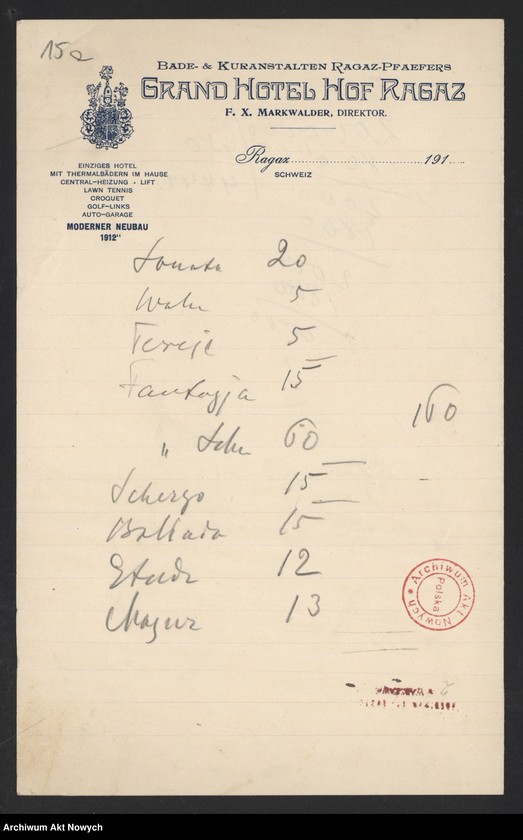 15a
BADE- & KURANSTALTEN RAGAZ-PFAEFERS
GRAND HOTEL HOF RAGAZ
F. X. MARKWALDER, DIREKTOR.
Ragaz 191
SCHWEIZ
EINZIGES HOTEL
MIT THERMALBÄDERN IM HAUSE
CENTRAL-HEIZUNG - LIFT
LAWN TENNIS
CROQUET
GOLF-LINKS
AUTO-GARAGE
MODERNER NEUBAU
1912
Sonata 20
5
5
Fantazja 15
160
„ Sch 60
Scherzo 15
Ballada 15
Etude 12
Mazur 13
Archiwum Akt Nowych
Polska
Archiwum Akt Nowych